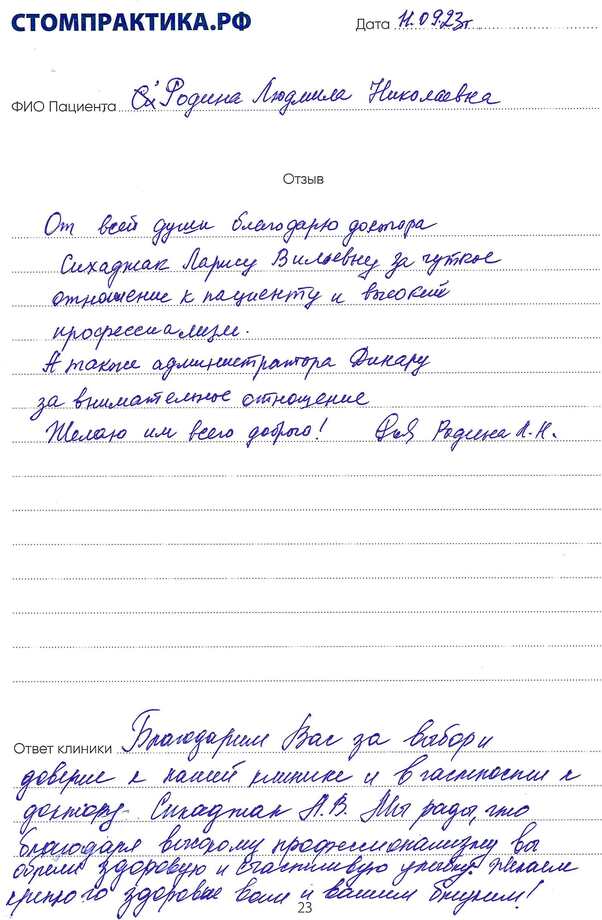 СТОМПРАКТИКА.РФ
Дата 11.09.23г
ФИО Пациента Родина Людмила Николаевна
Отзыв
От всей души благодарю доктора
Сихаджак Ларису Вильевну за чуткое
отношение к пациенту и высокий
профессиализм.
А также администратора Динару
за внимательное отношение
Желаю им всего доброго! Родина Л.Н.
Ответ клиники Благодарим Вас за выбор и
доверие к нашей клинике и в частности к
доктору Сихаджак Л.В. Мы рады, что
благодаря высокому профессионализму вы
обрели здоровую и счастливую улыбку. Желаем
крепкого здоровье вам и вашим близким!
23